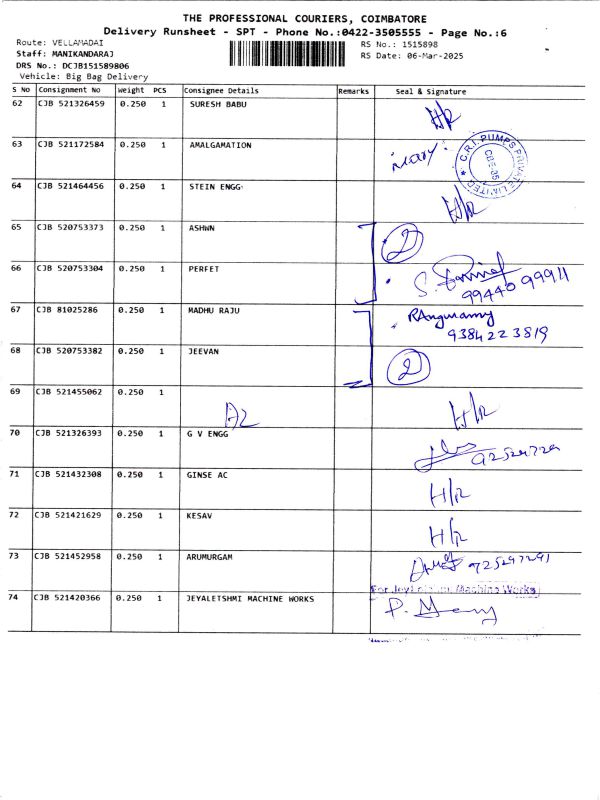 THE PROFESSIONAL COURIERS, COIMBATORE
Delivery Runsheet - SPT - Phone No.:0422-3505555 - Page No.:6
Route: VELLAMADAI
Staff: MANIKANDARAJ
DRS No.: DCJB151589806
Vehicle: Big Bag Delivery
RS No.: 1515898
RS Date: 06-Mar-2025
S No Consignment No Weight PCS Consignee Details Remarks Seal & Signature
62 CJB 521326459 0.250 1 SURESH BABU H/R
63 CJB 521172584 0.250 1 AMALGAMATION
C.R.I. PUMPS PRIVATE LIMITED
CBE-35
64 CJB 521464456 0.250 1 STEIN ENGG H/R
65 CJB 520753373 0.250 1 ASHWN 2
66 CJB 520753304 0.250 1 PERFET
99440 99911
67 CJB 81025286 0.250 1 MADHU RAJU
9384223819
68 CJB 520753382 0.250 1 JEEVAN 2
69 CJB 521455062 0.250 1 H/R
70 CJB 521326393 0.250 1 G V ENGG
71 CJB 521432308 0.250 1 GINSE AC H/R
72 CJB 521421629 0.250 1 KESAV H/R
73 CJB 521452958 0.250 1 ARUMURGAM
74 CJB 521420366 0.250 1 JEYALETSHMI MACHINE WORKS